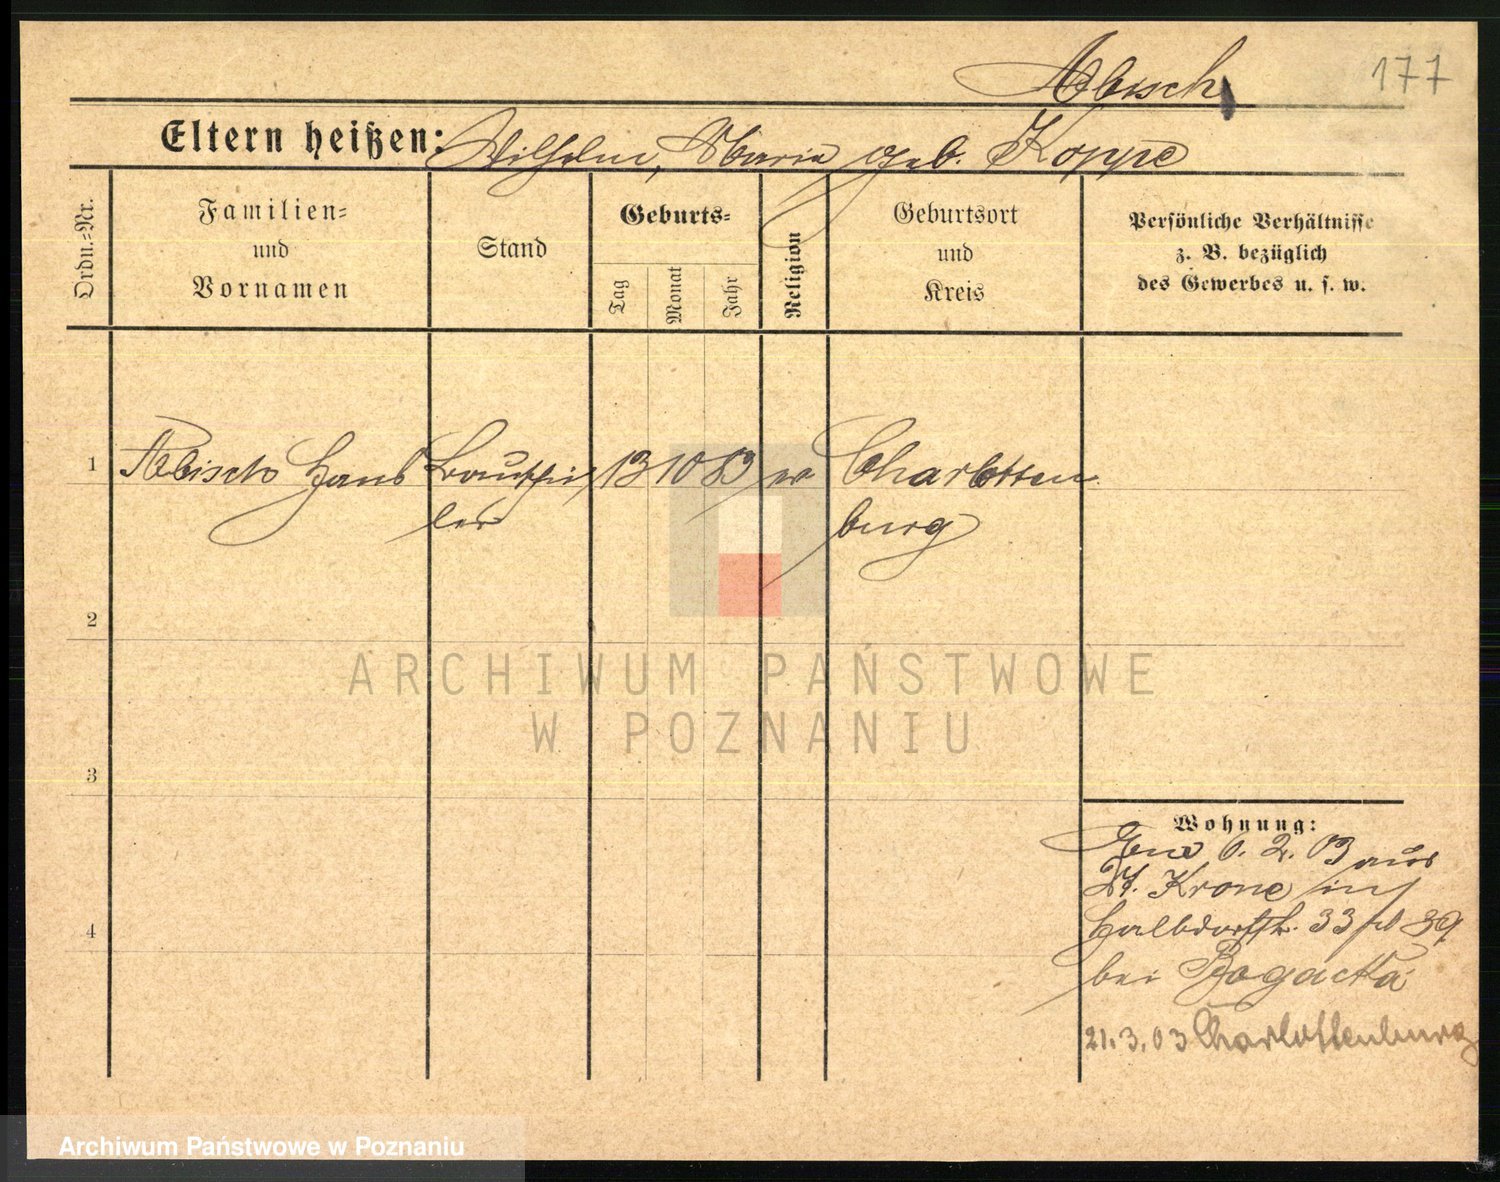 Abisch
177
Eltern heißen: Wilhelm, Maria geb. Koppe
Ordn.-Nr.
Familien-
und
Vornamen
Stand
Geburts-
Tag
Monat
Jahr
Religion
Geburtsort
und
Kreis
Persönliche Verhältnisse
z. B. bezüglich
des Gewerbes u. s. w.
1 Abisch Hans Bauschü 13 10 83 ev Charlotten
ler burg
2
3
4
Wohnung:
6. 2. 03 aus
Dt. Krone in
Halbdorfstr. 33 39
bei Bogacka
21.3.03 Charlottenburg
ARCHIWUM PAŃSTWOWE
W POZNANIU
Archiwum Państwowe w Poznaniu